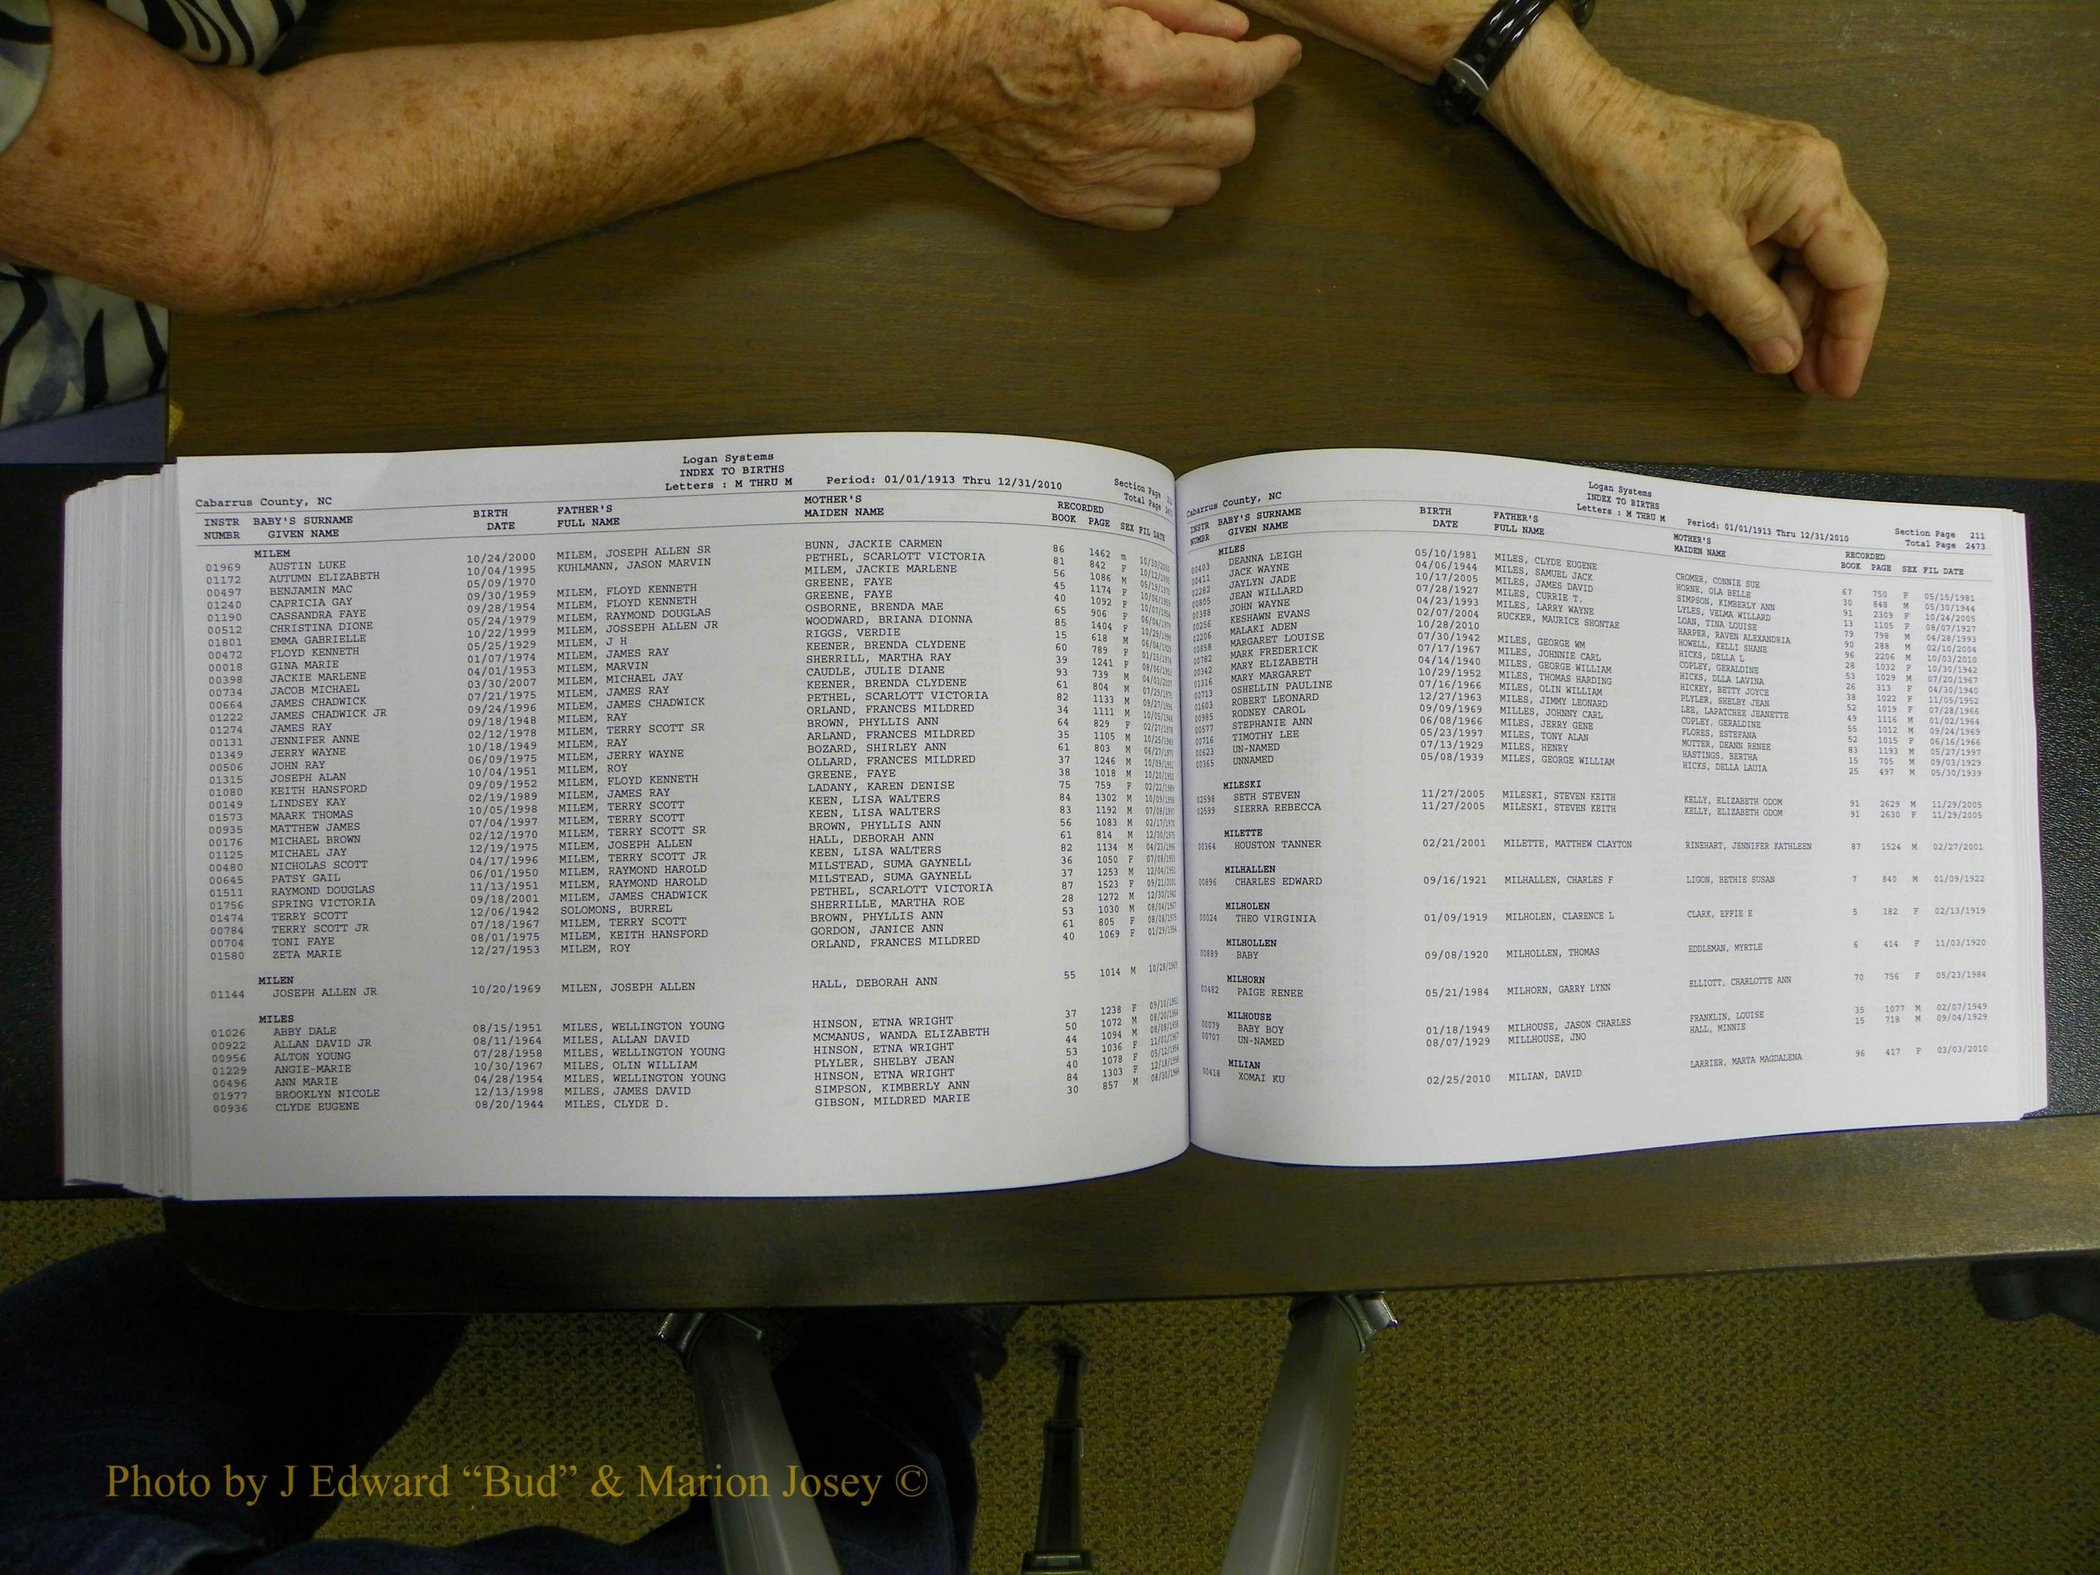 Logan Systems
INDEX TO BIRTHS
Cabarrus County, NC Letters : M THRU M Period: 01/01/1913 Thru 12/31/2010 Section Page
Total Page
INSTR BABY'S SURNAME BIRTH FATHER'S MOTHER'S RECORDED
NUMBR GIVEN NAME DATE FULL NAME MAIDEN NAME BOOK PAGE SEX FIL DATE
MILEM
01969 AUSTIN LUKE 10/24/2000 MILEM, JOSEPH ALLEN SR BUNN, JACKIE CARMEN 86 1462 m 10/30/2000
01172 AUTUMN ELIZABETH 10/04/1995 KUHLMANN, JASON MARVIN PETHEL, SCARLOTT VICTORIA 81 842 F 10/12/1995
00497 BENJAMIN MAC 05/09/1970 MILEM, JACKIE MARLENE 56 1086 M 05/19/1970
01240 CAPRICIA GAY 09/30/1959 MILEM, FLOYD KENNETH GREENE, FAYE 45 1174 F 10/06/1959
01190 CASSANDRA FAYE 09/28/1954 MILEM, FLOYD KENNETH GREENE, FAYE 40 1092 F 10/07/1954
00512 CHRISTINA DIONE 05/24/1979 MILEM, RAYMOND DOUGLAS OSBORNE, BRENDA MAE 65 906 F 06/04/1979
01801 EMMA GABRIELLE 10/22/1999 MILEM, JOSSEPH ALLEN JR WOODWARD, BRIANA DIONNA 85 1404 F 10/29/1999
00472 FLOYD KENNETH 05/25/1929 MILEM, J H RIGGS, VERDIE 15 618 M 06/04/1929
00018 GINA MARIE 01/07/1974 MILEM, JAMES RAY KEENER, BRENDA CLYDENE 60 789 F 01/15/1974
00398 JACKIE MARLENE 04/01/1953 MILEM, MARVIN SHERRILL, MARTHA RAY 39 1241 F 08/06/1953
00734 JACOB MICHAEL 03/30/2007 MILEM, MICHAEL JAY CAUDLE, JULIE DIANE 93 739 M 04/03/2007
00664 JAMES CHADWICK 07/21/1975 MILEM, JAMES RAY KEENER, BRENDA CLYDENE 61 804 M 07/29/1975
01222 JAMES CHADWICK JR 09/24/1996 MILEM, JAMES CHADWICK PETHEL, SCARLOTT VICTORIA 82 1133 M 09/27/1996
01274 JAMES RAY 09/18/1948 MILEM, RAY ORLAND, FRANCES MILDRED 34 1111 M 10/05/1948
00131 JENNIFER ANNE 02/12/1978 MILEM, TERRY SCOTT SR BROWN, PHYLLIS ANN 64 829 F 02/27/1978
01349 JERRY WAYNE 10/18/1949 MILEM, RAY ARLAND, FRANCES MILDRED 35 1105 M 10/25/1949
00506 JOHN RAY 06/09/1975 MILEM, JERRY WAYNE BOZARD, SHIRLEY ANN 61 803 M 06/27/1975
01315 JOSEPH ALAN 10/04/1951 MILEM, ROY OLLARD, FRANCES MILDRED 37 1246 M 10/09/1951
01080 KEITH HANSFORD 09/09/1952 MILEM, FLOYD KENNETH GREENE, FAYE 38 1018 M 10/20/1952
00149 LINDSEY KAY 02/19/1989 MILEM, JAMES RAY LADANY, KAREN DENISE 75 759 F 02/22/1989
01573 MAARK THOMAS 10/05/1998 MILEM, TERRY SCOTT KEEN, LISA WALTERS 84 1302 M 10/09/1998
00935 MATTHEW JAMES 07/04/1997 MILEM, TERRY SCOTT KEEN, LISA WALTERS 83 1192 M 07/08/1997
00176 MICHAEL BROWN 02/12/1970 MILEM, TERRY SCOTT SR BROWN, PHYLLIS ANN 56 1083 M 02/17/1970
01125 MICHAEL JAY 12/19/1975 MILEM, JOSEPH ALLEN HALL, DEBORAH ANN 61 814 M 12/30/1975
00480 NICHOLAS SCOTT 04/17/1996 MILEM, TERRY SCOTT JR KEEN, LISA WALTERS 82 1134 M 04/23/1996
00645 PATSY GAIL 06/01/1950 MILEM, RAYMOND HAROLD MILSTEAD, SUMA GAYNELL 36 1050 F 07/08/1950
01511 RAYMOND DOUGLAS 11/13/1951 MILEM, RAYMOND HAROLD MILSTEAD, SUMA GAYNELL 37 1253 M 12/04/1951
01756 SPRING VICTORIA 09/18/2001 MILEM, JAMES CHADWICK PETHEL, SCARLOTT VICTORIA 87 1523 F 09/21/2001
01474 TERRY SCOTT 12/06/1942 SOLOMONS, BURREL SHERRILLE, MARTHA ROE 28 1272 M 12/30/1942
00784 TERRY SCOTT JR 07/18/1967 MILEM, TERRY SCOTT BROWN, PHYLLIS ANN 53 1030 M 08/04/1967
00704 TONI FAYE 08/01/1975 MILEM, KEITH HANSFORD GORDON, JANICE ANN 61 805 F 08/08/1975
01580 ZETA MARIE 12/27/1953 MILEM, ROY ORLAND, FRANCES MILDRED 40 1069 F 01/29/1954
MILEN
01144 JOSEPH ALLEN JR 10/20/1969 MILEN, JOSEPH ALLEN HALL, DEBORAH ANN 55 1014 M 10/28/1969
MILES
01026 ABBY DALE 08/15/1951 MILES, WELLINGTON YOUNG HINSON, ETNA WRIGHT 37 1238 F 09/10/1951
00922 ALLAN DAVID JR 08/11/1964 MILES, ALLAN DAVID MCMANUS, WANDA ELIZABETH 50 1072 M 08/20/1964
00956 ALTON YOUNG 07/28/1958 MILES, WELLINGTON YOUNG HINSON, ETNA WRIGHT 44 1094 M 08/08/1958
01229 ANGIE-MARIE 10/30/1967 MILES, OLIN WILLIAM PLYLER, SHELBY JEAN 53 1036 F 11/01/1967
00496 ANN MARIE 04/28/1954 MILES, WELLINGTON YOUNG HINSON, ETNA WRIGHT 40 1078 F 05/12/1954
01977 BROOKLYN NICOLE 12/13/1998 MILES, JAMES DAVID SIMPSON, KIMBERLY ANN 84 1303 F 12/18/1998
00936 CLYDE EUGENE 08/20/1944 MILES, CLYDE D. GIBSON, MILDRED MARIE 30 857 M 08/30/1944
Logan Systems
INDEX TO BIRTHS
Cabarrus County, NC Letters : M THRU M Period: 01/01/1913 Thru 12/31/2010 Section Page 211
Total Page 2473
INSTR BABY'S SURNAME BIRTH FATHER'S MOTHER'S RECORDED
NUMBR GIVEN NAME DATE FULL NAME MAIDEN NAME BOOK PAGE SEX FIL DATE
MILES
00403 DEANNA LEIGH 05/10/1981 MILES, CLYDE EUGENE CROMER, CONNIE SUE 67 750 F 05/15/1981
00411 JACK WAYNE 04/06/1944 MILES, SAMUEL JACK HORNE, OLA BELLE 30 848 M 05/30/1944
02282 JAYLYN JADE 10/17/2005 MILES, JAMES DAVID SIMPSON, KIMBERLY ANN 91 2309 F 10/24/2005
00805 JEAN WILLARD 07/28/1927 MILES, CURRIE T. LYLES, VELMA WILLARD 13 1105 F 08/07/1927
00388 JOHN WAYNE 04/23/1993 MILES, LARRY WAYNE LOAN, TINA LOUISE 79 798 M 04/28/1993
00256 KESHAWN EVANS 02/07/2004 RUCKER, MAURICE SHONTAE HARPER, RAVEN ALEXANDRIA 90 288 M 02/10/2004
02206 MALAKI ADEN 10/28/2010 HOWELL, KELLI SHANE 96 2206 M 10/03/2010
00858 MARGARET LOUISE 07/30/1942 MILES, GEORGE WM HICKS, DELLA L 28 1032 F 10/30/1942
00782 MARK FREDERICK 07/17/1967 MILES, JOHNNIE CARL COPLEY, GERALDINE 53 1029 M 07/20/1967
00342 MARY ELIZABETH 04/14/1940 MILES, GEORGE WILLIAM HICKS, DLLA LAVINA 26 313 F 04/30/1940
01316 MARY MARGARET 10/29/1952 MILES, THOMAS HARDING HICKEY, BETTY JOYCE 38 1022 F 11/05/1952
00713 OSHELLIN PAULINE 07/16/1966 MILES, OLIN WILLIAM PLYLER, SHELBY JEAN 52 1019 F 07/28/1966
01603 ROBERT LEONARD 12/27/1963 MILES, JIMMY LEONARD LEE, LAPATCHEE JEANETTE 49 1116 M 01/02/1964
00985 RODNEY CAROL 09/09/1969 MILLES, JOHNNY CARL COPLEY, GERALDINE 55 1012 M 09/24/1969
00577 STEPHANIE ANN 06/08/1966 MILES, JERRY GENE FLORES, ESTEFANA 52 1015 F 06/16/1966
00716 TIMOTHY LEE 05/23/1997 MILES, TONY ALAN MOTTER, DEANN RENEE 83 1193 M 05/27/1997
00623 UN-NAMED 07/13/1929 MILES, HENRY HASTINGS, BERTHA 15 705 M 09/03/1929
00365 UNNAMED 05/08/1939 MILES, GEORGE WILLIAM HICKS, DELLA LAUIA 25 497 M 05/30/1939
MILESKI
02598 SETH STEVEN 11/27/2005 MILESKI, STEVEN KEITH KELLY, ELIZABETH ODOM 91 2629 M 11/29/2005
02599 SIERRA REBECCA 11/27/2005 MILESKI, STEVEN KEITH KELLY, ELIZABETH ODOM 91 2630 F 11/29/2005
MILETTE
00364 HOUSTON TANNER 02/21/2001 MILETTE, MATTHEW CLAYTON RINEHART, JENNIFER KATHLEEN 87 1524 M 02/27/2001
MILHALLEN
00896 CHARLES EDWARD 09/16/1921 MILHALLEN, CHARLES F LIGON, BETHIE SUSAN 7 840 M 01/09/1922
MILHOLEN
00024 THEO VIRGINIA 01/09/1919 MILHOLEN, CLARENCE L CLARK, EFFIE E 5 182 F 02/13/1919
MILHOLLEN
00889 BABY 09/08/1920 MILHOLLEN, THOMAS EDDLEMAN, MYRTLE 6 414 F 11/03/1920
MILHORN
00482 PAIGE RENEE 05/21/1984 MILHORN, GARRY LYNN ELLIOTT, CHARLOTTE ANN 70 756 F 05/23/1984
MILHOUSE
00079 BABY BOY 01/18/1949 MILHOUSE, JASON CHARLES FRANKLIN, LOUISE 35 1077 M 02/07/1949
00707 UN-NAMED 08/07/1929 MILLHOUSE, JNO HALL, MINNIE 15 718 M 09/04/1929
MILIAN
00418 XOMAI KU 02/25/2010 MILIAN, DAVID LARRIER, MARTA MAGDALENA 96 417 F 03/03/2010
Photo by J Edward “Bud” & Marion Josey ©